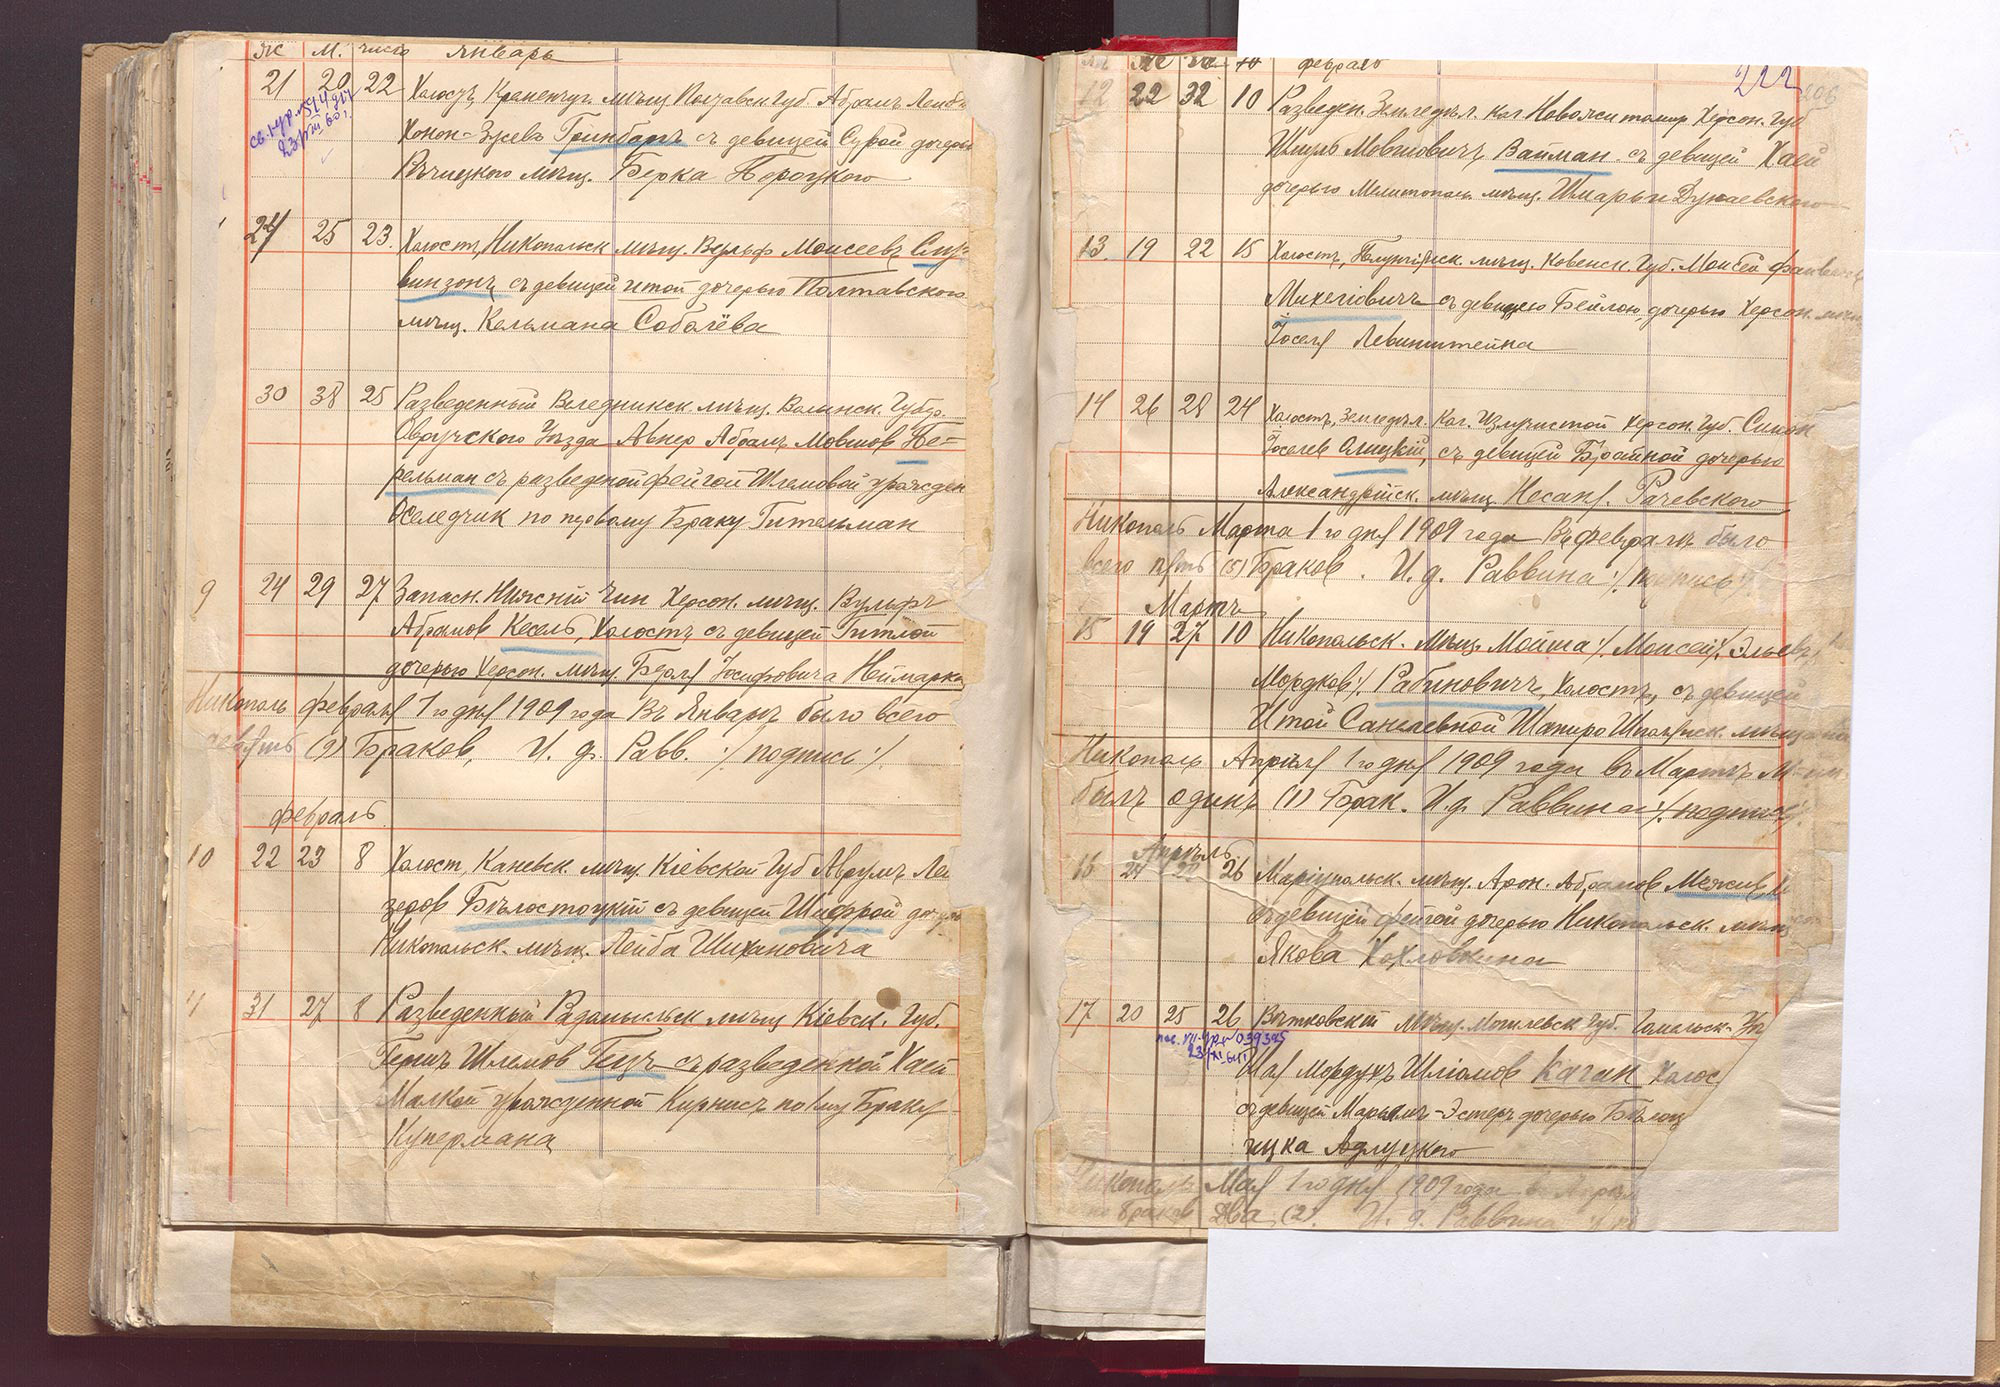 Ж М. число Январь
21 20 22 Холостъ Кременчуг. мѣщ Полтавск Губ Абрамъ Лейб
Хонон-Зусевъ Гринбаръ съ девицей Сурой дочерью
Рѣчицкого мѣщ. Берка Пороцкого
24 25 23. Холост, Никопольск мѣщ. Вульф Моисеевъ
съ девицей Итой дочерью Полтавского
мѣщ. Кельмана Соболёва
30 38 25 Разведенный Веледникск. мѣщ. Волынск. Губер.
Овручского Уѣзда Авнер Абрамъ Мовшов Пе-
рельман съ разведеной Фейгой Шлемовой урожден
Оселедчик по первому Браку Гительман
9 24 29 27 Запасн. Нижній Чин Херсон. мѣщ. Вульфъ
Абрамов Кесель, Холостъ съ девицей Гитлой
дочерью Херсон. мѣщ. Беря Иосифовича Неймарка
Никополь Февраля 1го дня 1909 года Въ Январѣ было всего
девять (9) Браков, И. д. Равв. :/ подпись :/.
Февраль
10 22 23 8 Холост, Каневск. мѣщ. Кіевской Губ Аврумъ Лей
зеров Бѣлостоцкій съ девицей Шифрой дочерью
Никопольск. мѣщ. Лейба Шихановича
31 27 8 Разведенный Радомысльск мѣщ Кіевск. Губ.
Гершъ Шлемов Гецъ съ разведенной Хаей
Малкой урожденной Кирнисъ по 1му Браку
Купермана
Февраль
222
12 22 32 10 Разведен. Земледѣл. кол Новожитомир Херсон. Губ
Шмуль Мовшовичъ Вайман. съ девицей Хаей
дочерью Мелитополь мѣщ. Шмарьи Дунаевского
13. 19 22 15 Холостъ, мѣщ. Ковенск. Губ. Моисей
съ девицею Бейлою, дочерью Херсон. мѣщ
Іоселя Левинштейна
14 26 28 24 Холостъ, земледѣл. Кол. Излучистой Херсон. Губ. Симон
Іоселев Олицкій, съ девицей Брайной дочерью
Александрійск. мѣщ. Рачевского
Никополь Марта 1го дня 1909 года Въ Февралѣ было
всего пять (5) Браков. И. д. Раввина :/ подпись :/
Мартъ
15 19 27 10 Никопольск. мѣщ. Мойша /: Моисей :/ Эльевъ
Мордков :/. Рабиновичъ, Холостъ, съ девицей
Итой Шапиро мѣщ
Никополь Апрѣля 1го дня 1909 года въ Мартѣ
былъ одинъ (1) Брак. И. д. Раввина :/. подпись :/.
Апрѣль
16 24 22 26 Маріупольск. мѣщ. Арон. Абрамов
съ девицей Фейгой дочерью Никопольск. мѣщ
Якова Хохловкина
17 20 25 26 Вѣтковскій мѣщ. Могилевск Губ. Гомельск. Уѣ
23/XI-61г
Мордухъ Шліомов Каган Холос
съ девицей Марьямъ-Эстеръ дочерью
Адлуцкого
Никополь Мая 1го дня 1909 года въ Апрѣл
браков два (2). И. д. Раввина